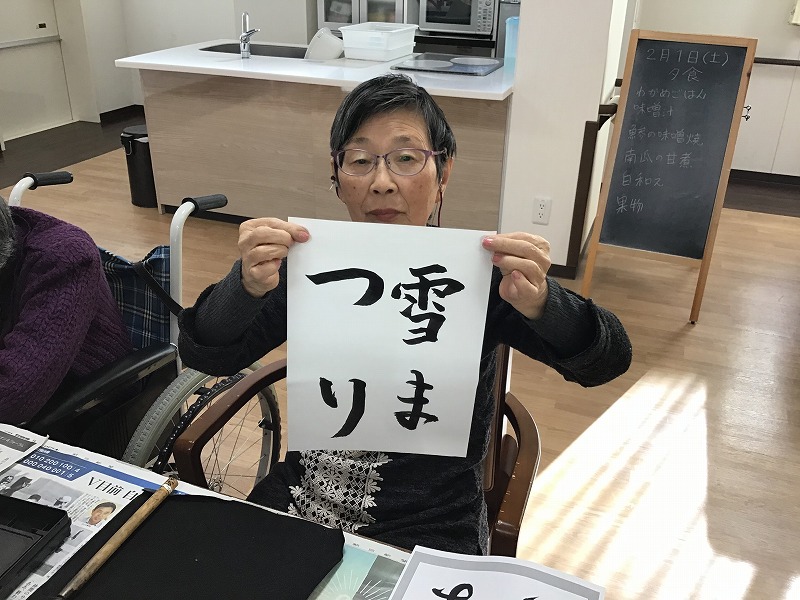 雪ま
つり
2月1日(土)
夕食
わかめごはん
味噌汁
南瓜の甘煮
白和え
果物